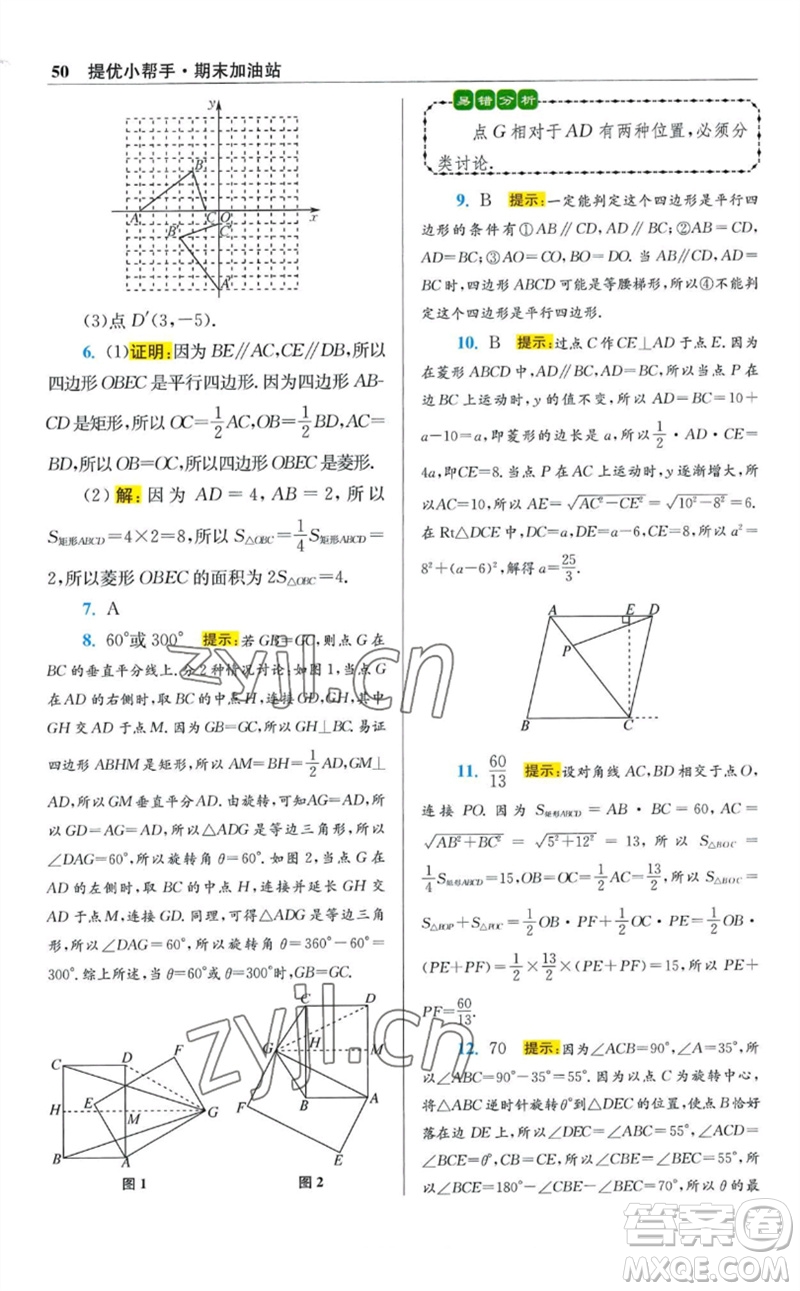 50 提优小帮手·期末加油站
y
B
A C O x
B′ C′
A′
(3)点 D′(3,-5).
6. (1)证明:因为 BE∥AC,CE∥DB,所以
四边形 OBEC 是平行四边形.因为四边形 AB-
CD 是矩形,所以 OC=1/2 AC,OB=1/2 BD,AC=
BD,所以 OC=OB,所以四边形 OBEC 是菱形.
(2)解:因为 AD=4,AB=2,所以
S矩形ABCD=4×2=8,所以 S△OBC=1/4 S矩形ABCD=
2,所以菱形 OBEC 的面积为 2S△OBC=4.
7. A
8. 60°或 300° 提示:若 GB=GC,则点 G 在
BC 的垂直平分线上.分 2 种情况讨论:如图 1,当点 G
在 AD 的右侧时,取 BC 的中点 H,连接 GD,GH,其中
GH 交 AD 于点 M.因为 GB=GC,所以 GH⊥BC.易证
四边形 ABHM 是矩形,所以 AM=BH=1/2 AD,GM⊥
AD,所以 GM 垂直平分 AD.由旋转可知 AG=AD,所
以 GD=AG=AD,所以△ADG 是等边三角形,所以
∠DAG=60°,所以旋转角 θ=60°.如图 2,当点 G 在
AD 的左侧时,取 BC 的中点 H,连接并延长 GH 交
AD 于点 M,连接 GD.同理,可得△ADG 是等边三角
形,所以∠DAG=60°,所以旋转角 θ=360°-60°=
300°.综上所述,当 θ 为 60°或 300°时,GB=GC.
C D F
H E M G
B A
图 1
C D
G H M
F B A
E
图 2
易错分析
点 G 相对于 AD 有两种位置,必须分
类讨论.
9. B 提示:一定能判定这个四边形是平行四
边形的条件有①AB∥CD,AD∥BC;②AB=CD,
AD=BC;③AO=CO,BO=DO.当 AB∥CD,AD=
BC 时,四边形 ABCD 可能是等腰梯形,所以④不能判
定这个四边形是平行四边形.
10. B 提示:过点 C 作 CE⊥AD 于点 E.因为
在菱形 ABCD 中,AD∥BC,所以当点 P 在
边 BC 上运动时,y 的值不变,所以 AD=BC=10+
a-10=a,即菱形的边长是 a,所以 1/2·AD·CE=
4a,即 CE=8.当点 P 在 AC 上运动时,y 逐渐增大,所以
AC=10,所以 AE=√(AC²-CE²)=√(10²-8²)=6.
在 Rt△DCE 中,DC=a,DE=a-6,CE=8,所以 a²=
8²+(a-6)²,解得 a=25/3.
A E D
P
B C
11. 60/13 提示:设对角线 AC,BD 相交于点 O,
连接 PO.因为 S矩形ABCD=AB·BC=60,AC=
√(AB²+BC²)=√(5²+12²)=13,所以 S△BOC=
1/4 S矩形ABCD=15,OB=OC=1/2 AC=13/2,所以 S△BOC=
S△BOP+S△POC=1/2 OB·PF+1/2 OC·PE=1/2 OB·
(PE+PF)=1/2×13/2×(PE+PF)=15,所以 PE+
PF=60/13.
12. 70 提示:因为∠ACB=90°,∠A=35°,所以
∠ABC=90°-35°=55°.因为以点 C 为旋转中心,
将△ABC 逆时针旋转 θ°到△DEC 的位置,使点 B 恰好
落在边 DE 上,所以∠E=∠ABC=55°,BC=CE,
∠BCE=θ°,所以∠CBE=∠E=55°,所以
∠BCE=180°-∠CBE-∠E=70°,所以 θ 的最
zyjl.cn
zyjl.cn
答案卷
MXQE.COM